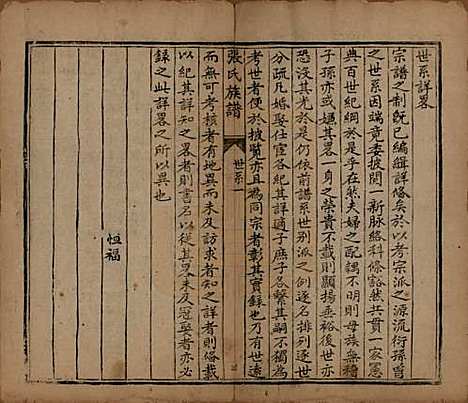 世系詳畧
宗譜之制既已編緝詳俻矣於以考宗派之源流衍孫曾
之世系因端竟委披閱一新脉絡科條豁然共貫一家憲
典百世紀綱于是乎在然夫婦之配耦不明則母族無稽
子孫亦或 其畧一身之榮貴不載則顕揚垂裕後世亦
恐沒其光於是仍依前譜系世别派之例逐名排列逐世
分疏凡婚娶仕宦各紀其詳適子庶子各繫其嗣不獨為
考世者便於披覧亦且為同宗者彰其實錄也乃有世遠
張氏族譜
世系一
而無可考核者有而未及訪求者知之詳者則備載
以紀其詳知之畧者則書名以從其畧未及冠娶者亦必
錄之此詳畧之所以異也
恒福